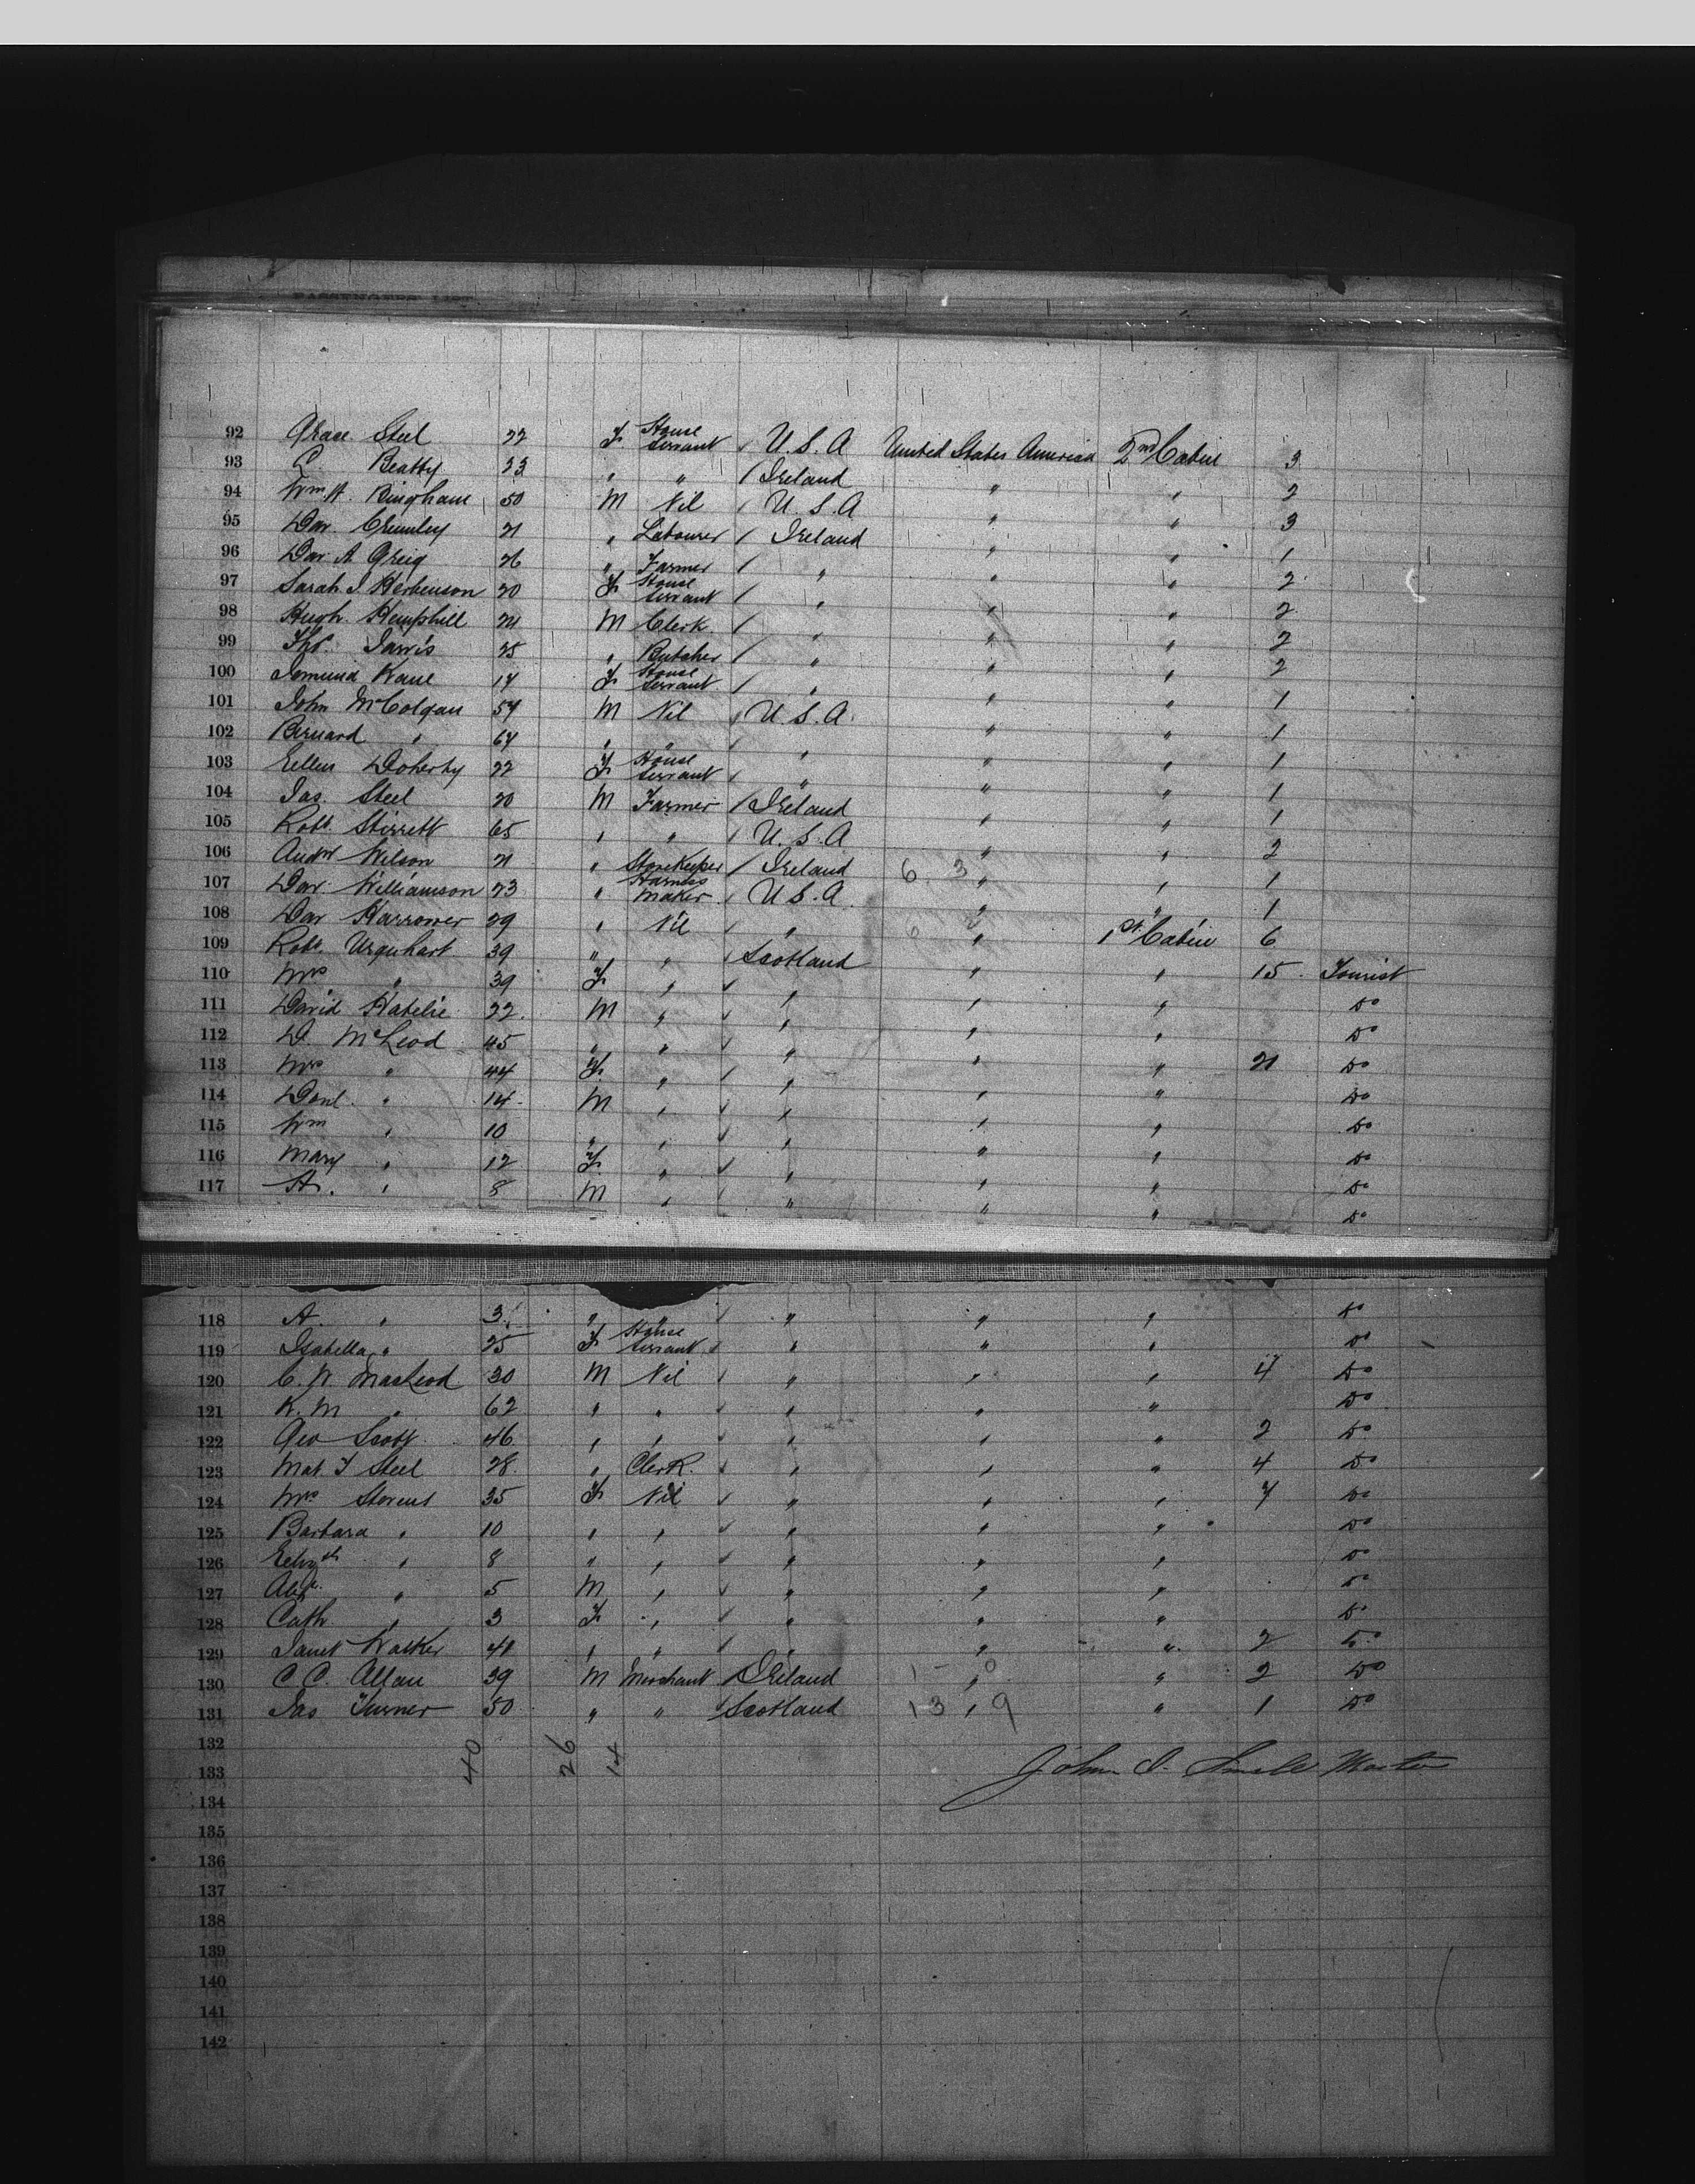 PASSENGERS LIST
92 Grace Steel 22 F House Servant / U.S.A United States America 2nd Cabin 3
93 C. Beatty 23 " " / Ireland " " 2
94 Wm A. Bingham 50 M Nil / U.S.A " " 3
95 Dav. Crumley 21 " Labourer / Ireland " " 1
96 Dav. A Greig 26 " Farmer / " " " 2
97 Sarah J Herbenson 20 F House Servant / " " " 2
98 Hugh Hemphill 21 M Clerk / " " " 2
99 Tho. Jarvis 25 " Butcher / " " " 2
100 Kane 17 F House Servant / " " " 1
101 John McColgan 54 M Nil / U.S.A. " " 1
102 Bernard " 64 " " / " " " 1
103 Ellen Doherty 22 F House Servant / " " " 1
104 Jas. Steel 20 M Farmer / Ireland " " 1
105 Robt. Stirrett 65 " " / U.S.A " " 2
106 Andw Wilson 21 " Storekeeper / Ireland 6.3 " " 1
107 Dav. Williamson 23 " Harness Maker / U.S.A. " " 1
108 Dav Harrower 29 " Nil / " " 1st Cabin 6
109 Robt. Urquhart 39 " " / Scotland " " 15 Tourist
110 Mrs " 39 F " / " " " Do
111 David 22 M " / " " " Do
112 D. McLeod 45 " " / " " " 21 Do
113 Mrs " 44 F " / " " " Do
114 Danl. " 14 M " / " " " Do
115 Wm " 10 " " / " " " Do
116 Mary " 12 F " / " " " Do
117 H. " 8 M " " " " Do
118 A. " 3 " " / " " " Do
119 Isabella " 25 F House Servant / " " " Do
120 C. W MacLeod 30 M Nil / " " " 4 Do
121 K. M " 62 " " / " " " Do
122 Geo Scott 46 " " / " " " 2 Do
123 Mat. T Steel 28 " Clerk / " " " 4 Do
124 Mrs Stevens 35 F Nil / " " " 7 Do
125 Barbara " 10 " " / " " " Do
126 Elizth " 8 " " / " " " Do
127 Alex. " 5 M " / " " " Do
128 Cath " 3 F " / " " " Do
129 Janet Walker 41 " " / " " " 2 Do
130 C. C. Allan 39 M Merchant / Ireland " " 2 Do
131 Jas Turner 50 " " / Scotland 13 " 9 " 1 Do
132
40 26 14
133 John Master
134
135
136
137
138
139
140
141
142